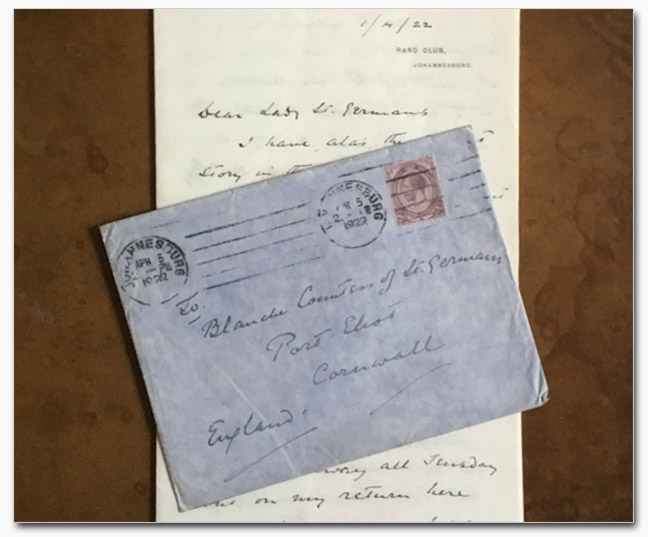 1/4/22
RAND CLUB,
JOHANNESBURG.
Dear Lady St. Germans
I have, alas, the
story in th
JOHANNESBURG
APR 5
1922
JOHANNESBURG
APR 5
1922
To.
Blanche Countess of St. Germans
Port Eliot
Cornwall
England.
away all Tuesday
on my return here